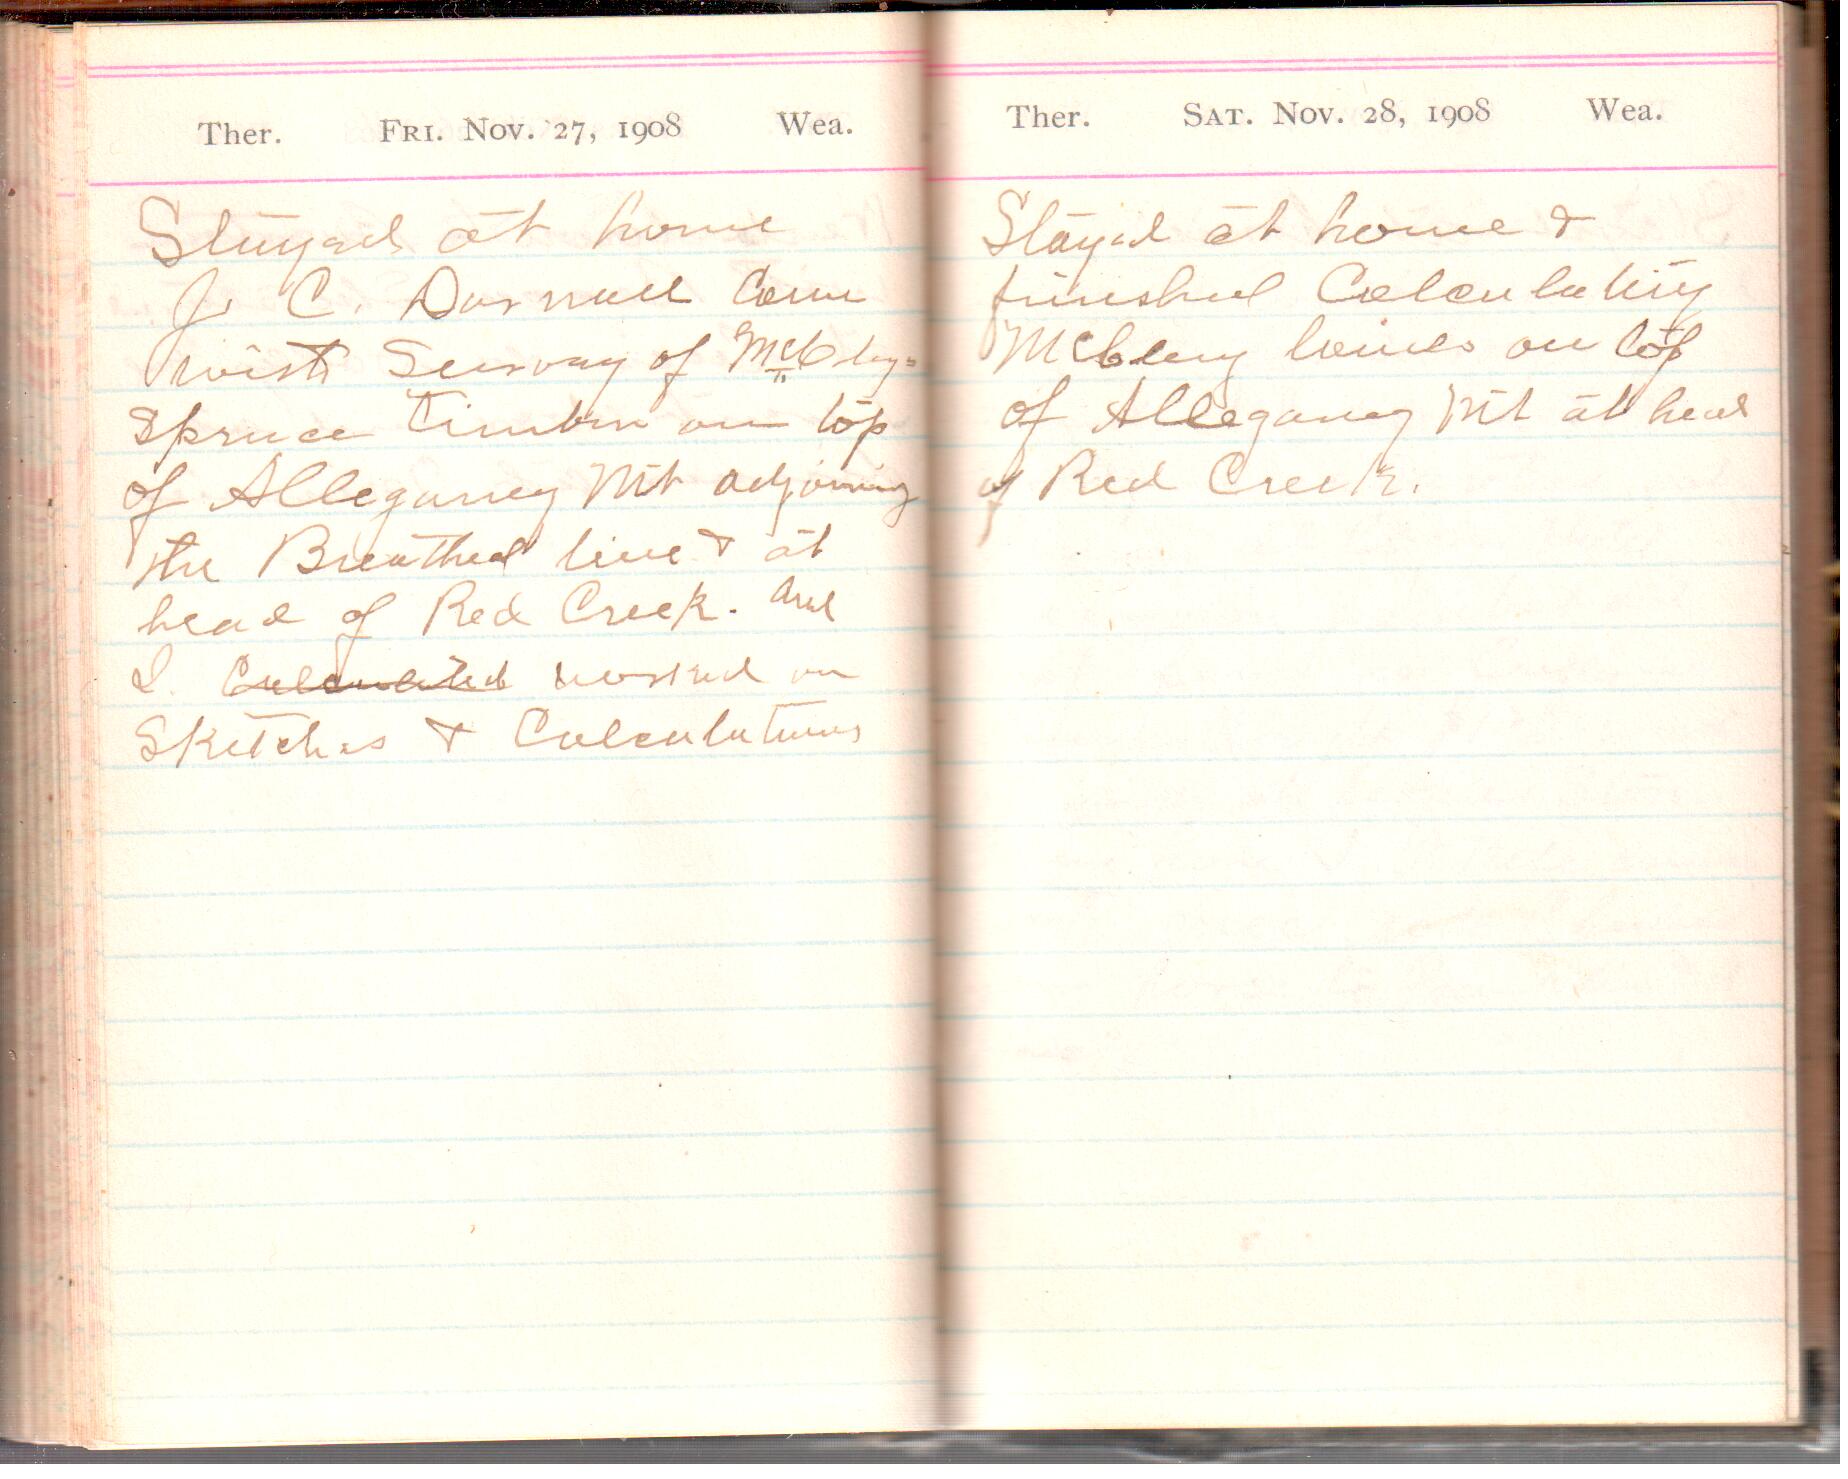 Ther. Fri. Nov. 27, 1908 Wea.
Stayed at home
J. C. Darnall Come
with Survay of
Spruce Timber on top
of Allegany Mt adjoining
the Breathed line & at
head of Red Creek. And
I. Calculated worked on
Sketches & Calculations
Ther. Sat. Nov. 28, 1908 Wea.
Stayed at home &
finished Calculating
lines on top
of Allegany Mt at head
of Red Creek.